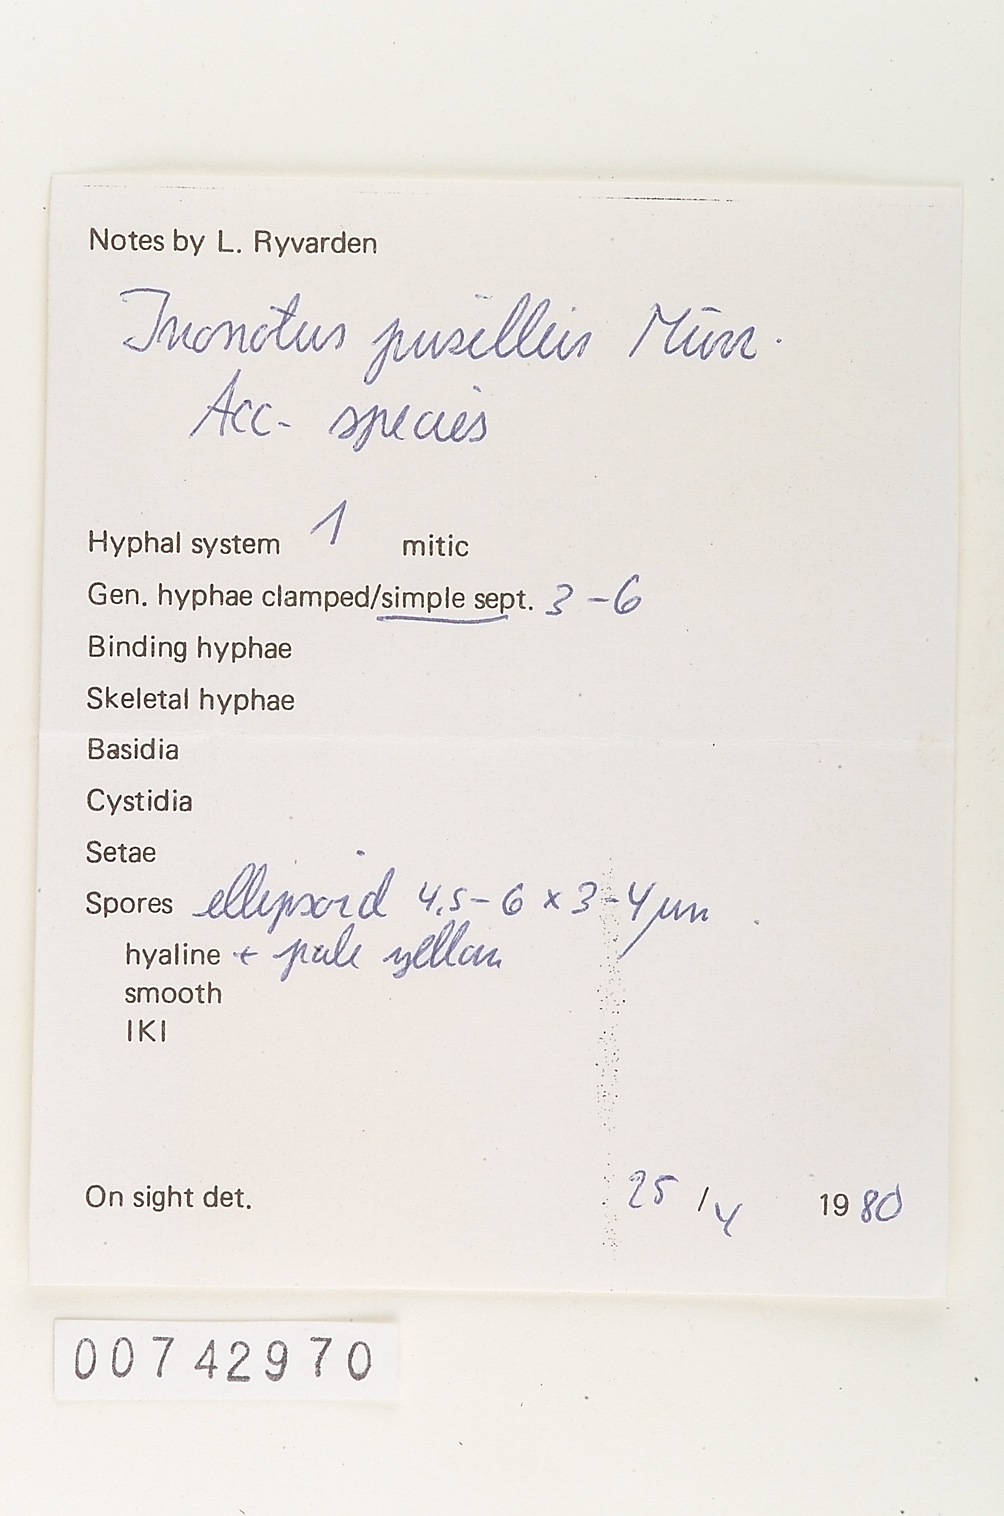 Notes by L. Ryvarden
Inonotus pusillus Murr.
Acc. species
Hyphal system 1 mitic
Gen. hyphae clamped/simple sept. 3-6
Binding hyphae
Skeletal hyphae
Basidia
Cystidia
Setae
Spores ellipsoid 4,5-6 x 3-4 µm
hyaline + pale yellow
smooth
IKI
On sight det. 25/4 1980
00742970